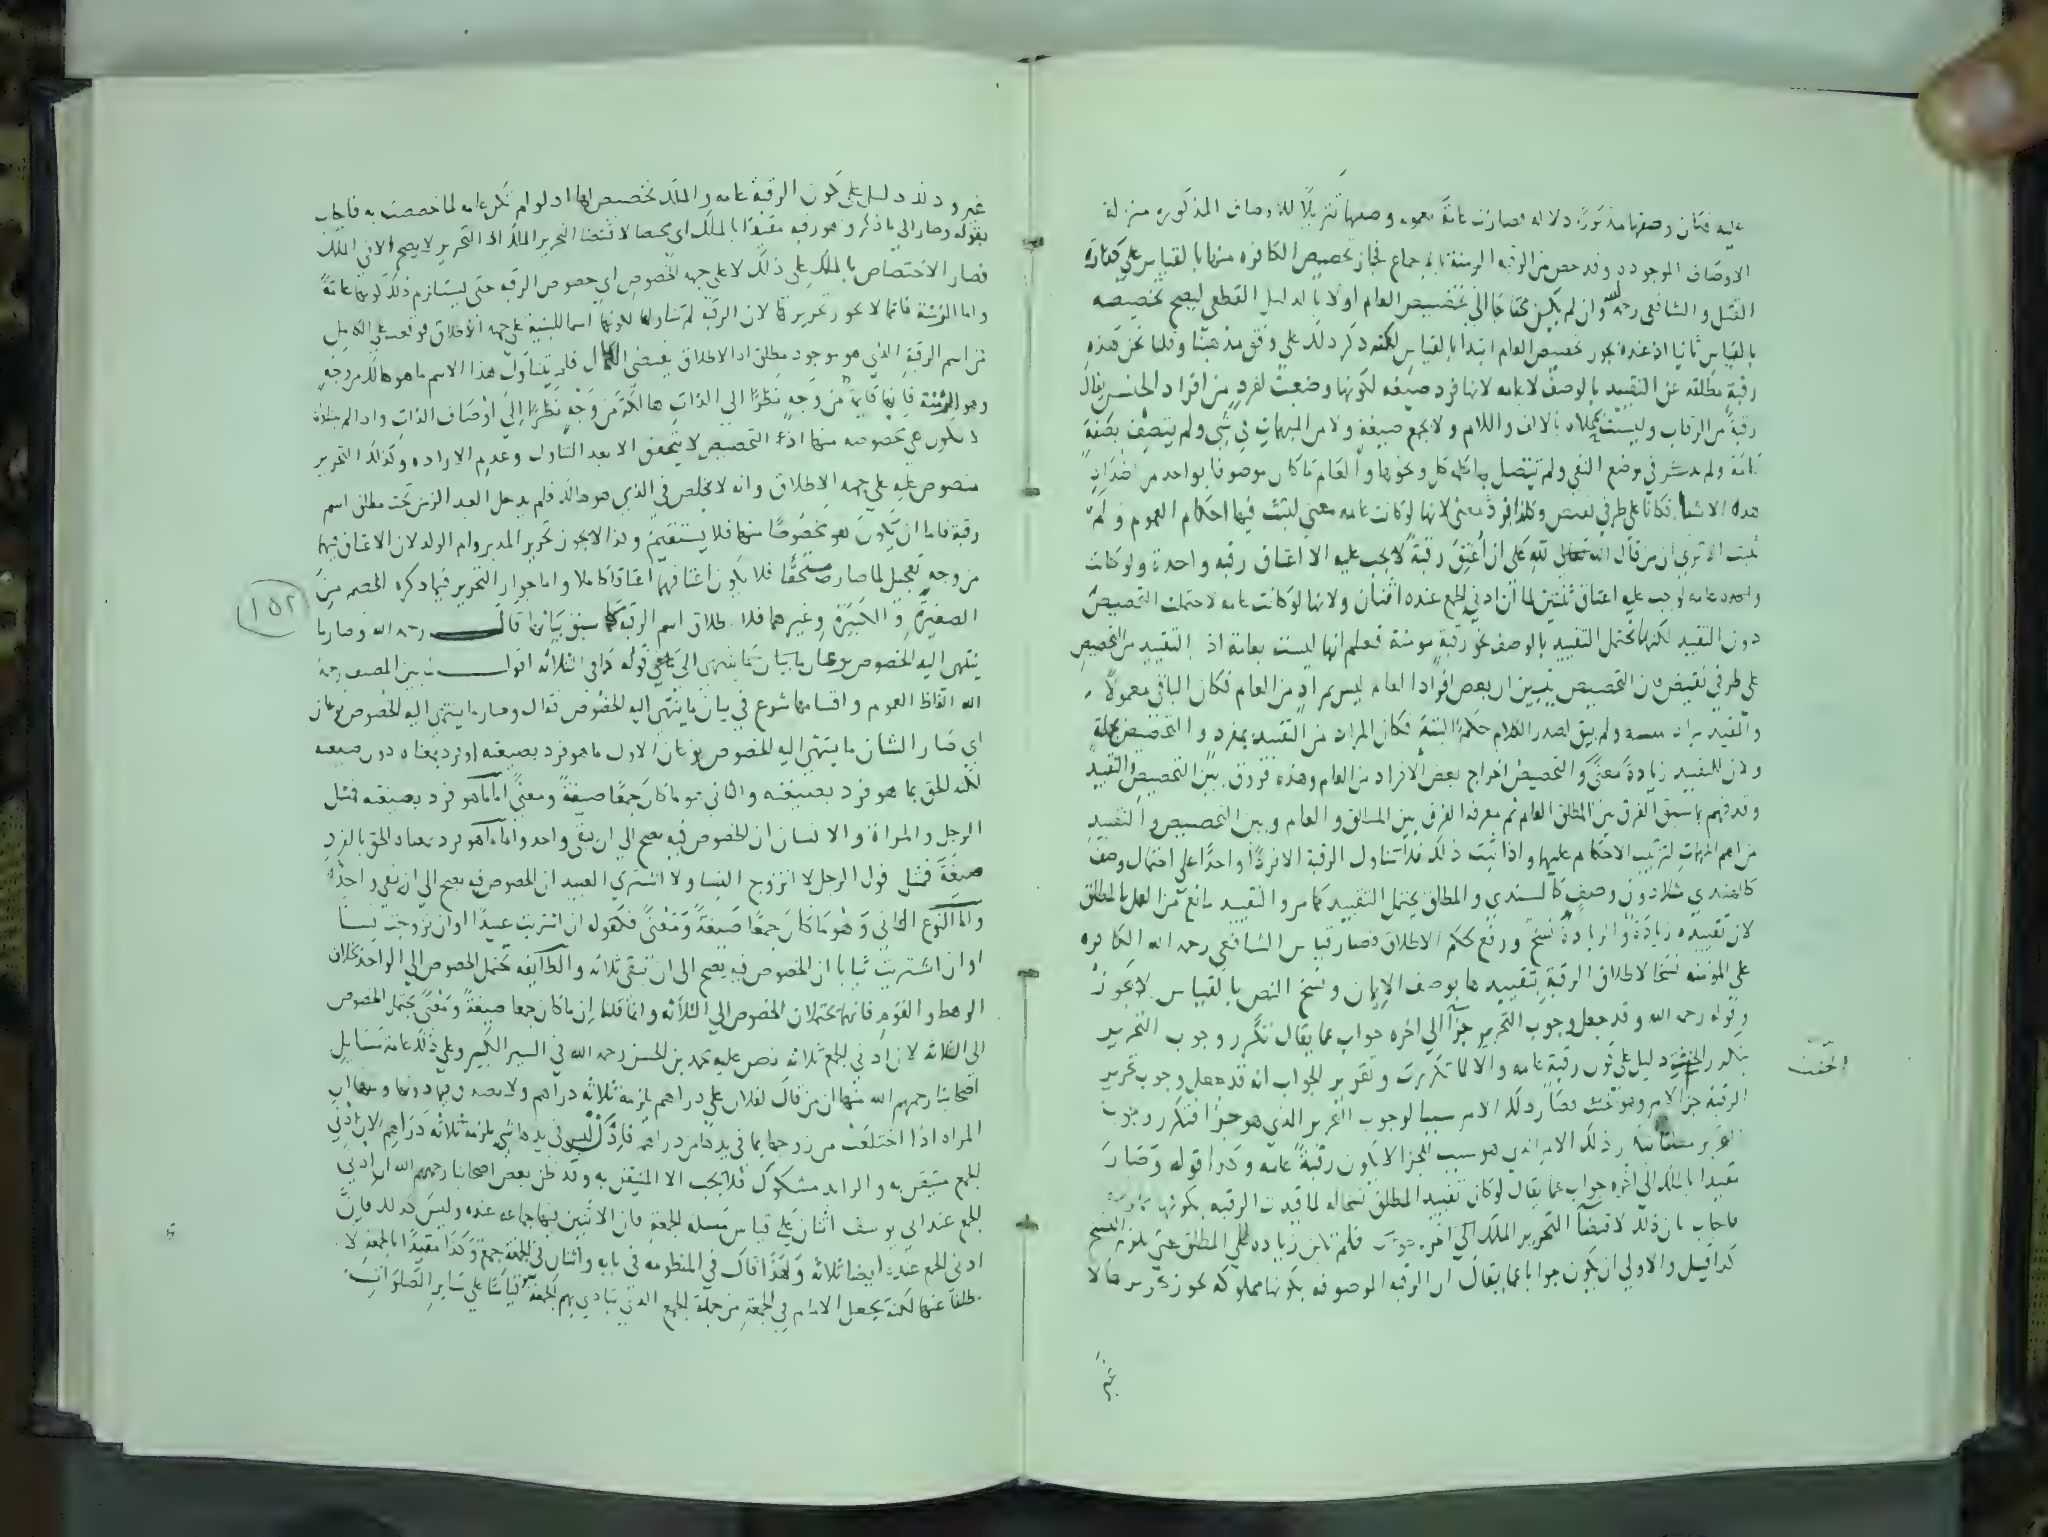 عليه فكان وصفها مذكورا دلالة فصارت عامة بعموم وصفها تنزيلا للاوصاف المذكورة منزلة
الاوصاف الموجودة وقد خص من الرقبة الزمنة بالاجماع فجاز تخصيص الكافرة منها بالقياس على كفارة
القتل والشافعي رحمه الله وان لم يكن محتاجا الى تخصيص العام اولا بالدليل القطعي ليصح تخصيصه
بالقياس ثانيا اذ عنده يجوز تخصيص العام ابتدا بالقياس لكنه ذكر ذلك على وفق مذهبنا وقلنا نحن هذه
رقبة مطلقة عن التقييد بالوصف لا عامة لانها فرد صيغة لكونها وضعت لفرد من افراد الجنس يقال
رقبة من الرقاب وليست بمحلاة بالالف واللام ولا بجمع صيغة ولا من المبهمات في شي ولم يتصف بصفة
عامة ولم تقع في موضع النفي ولم تتصل بها كلمة كل ونحوها والعام ما كان موصوفا بواحد من
هذه الاشيا فكانا على طرفي نقيض وكذا فرد معنى لانها لو كانت عامة معنى لثبت فيها احكام العموم ولم
تثبت الا ترى ان من قال لله على ان اعتق رقبة لا يجب عليه الا اعتاق رقبة واحدة ولو كانت
عامة لوجب عليه اعتاق ثلثين لما ان ادنى الجمع عنده اثنان ولانها لو كانت عامة لاحتملت التخصيص
دون التقييد لكنها تحتمل التقييد بالوصف نحو رقبة مؤمنة فعلم انها ليست بعامة اذ التقييد من التخصيص
على طرفي نقيض فان التخصيص يبين ان بعض افراد العام ليس بمراد من العام فكان الباقي معمولا
والمقيد مراد بنفسه ولم يبق لصدر الكلام حكمه البتة فكان المراد من التقييد بمفرد والتخصيص بجملة
ولان للتقييد زيادة معنى والتخصيص اخراج بعض الافراد من العام وهذه فروق بين التخصيص والتقييد
وقد فهم بما سبق الفرق بين المطلق والعام ثم معرفة الفرق بين المطلق والعام وبين التخصيص والتقييد
من اهم المهمات لترتيب الاحكام عليها واذا ثبت ذلك فلا تتناول الرقبة الا فردا واحدا على احتمال وصف
كالهندي مثلا دون وصف كالسندي والمطلق يحتمل التقييد كما مر والتقييد مانع من العمل بالمطلق
لان تقييده زيادة والزيادة نسخ ورفع حكم الاطلاق فصار قياس الشافعي رحمه الله الكافرة
على المؤمنة نسخا لاطلاق الرقبة بتقييدها بوصف الايمان ونسخ النص بالقياس لا يجوز
وقوله رحمه الله وقد جعل وجوب التحرير جزآ الى اخره جواب عما يقال تكرر وجوب التحرير
بتكرر الحنث دليل على كون رقبة عامة والا لما تكررت وتقرير الجواب انه قد جعل وجوب تحرير
الرقبة جزآ لامر وهو الحنث فصار ذلك الامر سببا لوجوب التحرير الذي هو جزآ فتكرر وجوب
التحرير ذلك الامر الذي هو سبب الجزا لا يكون رقبة عامة وكذا قوله وصار
مقيدا بالملك الى اخره جواب عما يقال لو كان تقييد المطلق نسخا له لما قيدت الرقبة بكونها مملوكة
فاجاب بان ذلك لاقتضآ التحرير الملك الى اخره فلم تكن زيادة على المطلق حتى يلزم النسخ
كذا قيل والاولى ان يكون جوابا عما يقال ان الرقبة الموصوفة بكونها مملوكة يجوز تحريرها لا
الحنث
غير
غير وذلك دليل على كون الرقبة عامة والملك تخصيص لها اذ لو لم تكن عامة لما خصصت به فاجاب
بقوله وصار الى ما ذكر وهو رقبة مقيدا بالملك اي مخصصا لاقتضا التحرير الملك اذ التحرير لا يصح الا في الملك
فصار الاختصاص بالملك على ذلك لا على جهة الخصوص اي خصوص الرقبة حتى يستلزم ذلك كونها عامة
واما الزمنة فانما لا يجوز تحريرها لان الرقبة لم تتناولها لكونها اسما للبنية على جهة الاطلاق فوقعت على الكامل
من اسم الرقبة الذي هو موجود مطلق اذ الاطلاق يقتضي الكمال فلم يتناول هذا الاسم ما هو هالك من وجه
وهو الزمنة فانها قايمة من وجه نظرا الى الذات هالكة من وجه نظرا الى اوصاف الذات واذا لم يتناوله
لا تكون هي مخصوصة منها اذ التخصيص لا يتحقق الا بعد التناول وعدم الارادة وكذلك التحرير
منصوص عليه على جهة الاطلاق وانه لا يخلص في الذي هو هالك فلم يدخل العبد الزمن تحت مطلق اسم
رقبة فاما ان يكون هو مخصوصا منها فلا يستقيم ولذا لا يجوز تحرير المدبر وام الولد لان الاعتاق فيهما
من وجه تعجيل لما صار مستحقا فلا يكون اعتاقهما اعتاقا كاملا واما جواز التحرير فيما ذكره الخصم من
الصغيرة والكبيرة وغيرهما فلاطلاق اسم الرقبة كما سبق بيانها قال رحمه الله وصار ما
ينتهي اليه الخصوص نوعان ما بيان ما ينتهي الى قوله في الثلاثة اقول لما بين المصنف رحمه
الله الفاظ العموم واقسامها شرع في بيان ما ينتهي اليه الخصوص فقال وصار ما ينتهي اليه الخصوص نوعان
اي صار الشان ما ينتهي اليه الخصوص نوعان الاول ما هو فرد بصيغته او فرد بمعناه دون صيغته
لكنه الحق بما هو فرد بصيغته والثاني هو ما كان جمعا صيغة ومعنى اما ما هو فرد بصيغته فمثل
الرجل والمراة والانسان ان الخصوص فيه يصح الى ان يبقى واحد واما ما هو فرد بمعناه الحق بالفرد
صيغة فمثل قول الرجل لا اتزوج النسا ولا اشتري العبيد ان الخصوص فيه يصح الى ان يبقى واحدا
واما النوع الثاني وهو ما كان جمعا صيغة ومعنى فكقوله ان اشتريت عبيدا او ان تزوجت نسا
او ان اشتريت ثيابا ان الخصوص فيه يصح الى ان تبقى ثلاثة والطايفة تحتمل الخصوص الى الواحد بخلاف
الرهط والقوم فانهما يحتملان الخصوص الى الثلاثة وانما قلنا ان ما كان جمعا صيغة ومعنى يحتمل الخصوص
الى الثلاثة لان ادنى الجمع ثلاثة نص عليه محمد بن الحسن رحمه الله في السير الكبير وعلى ذلك عامة مسايل
اصحابنا رحمهم الله منها ان من قال لفلان علي دراهم يلزمه ثلاثة دراهم ولا يصدق فيما دونها ومنها ان
المراة اذا اختلعت من زوجها بما في يدها من دراهم فاذا ليس في يدها شي يلزمه ثلاثة دراهم لان ادنى
الجمع متيقن به والزايد مشكوك فلا يجب الا المتيقن به وقد ظن بعض اصحابنا رحمهم الله ان ادنى
الجمع عند ابي يوسف اثنان على قياس مسئلة الجمعة فان الاثنين فيها جماعة عنده وليس كذلك فان
ادنى الجمع عنده ايضا ثلاثة ولهذا قال في المنظومة في بابه واثنان في الجمعة جمع وكذا مقيدا بالجمعة لا
مطلقا عنها لكنه يجعل الامام في الجمعة من جملة الجمع الذي تتادى بهم الجمعة قياسا على ساير الصلوات
١٥٢